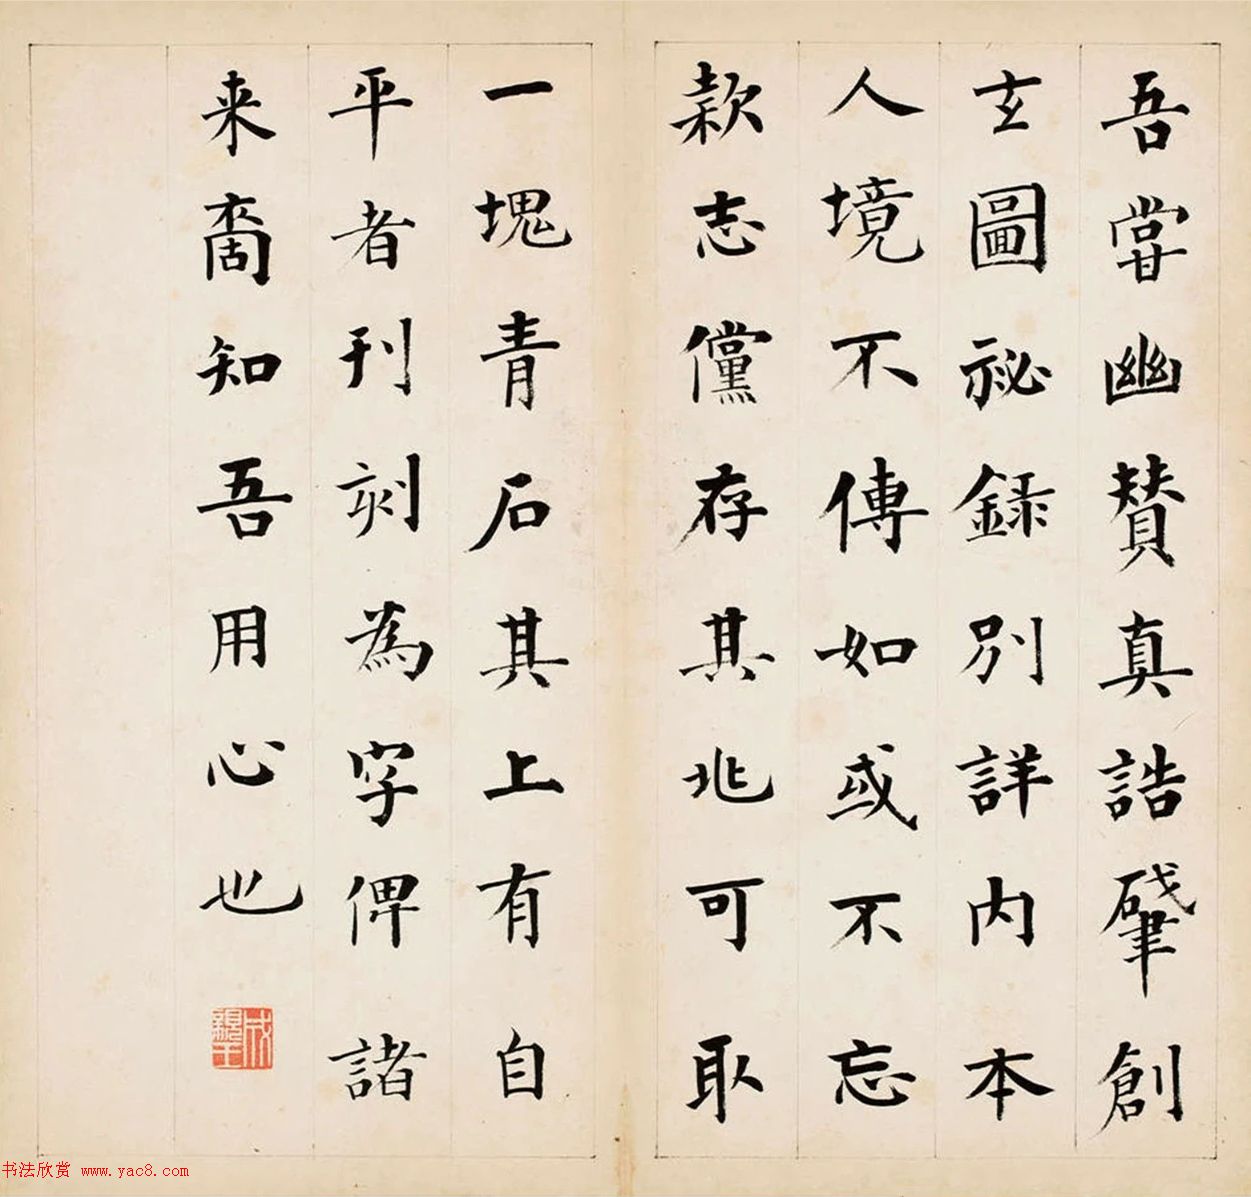 吾嘗幽賛真誥肇創
玄圖祕録別詳内本
人境不傳如或不忘
款志儻存其兆可取
一塊青石其上有自
平者刊刻為字俾諸
来裔知吾用心也
成親王
书法欣赏 www.yac8.com